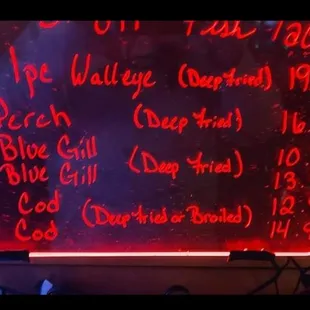 Off Fish 120
1pc Walleye (Deep fried) 19
Perch (Deep Fried) 16
Blue Gill (Deep fried) 10
Blue Gill 13
Cod (Deep fried or Broiled) 12
Cod 14